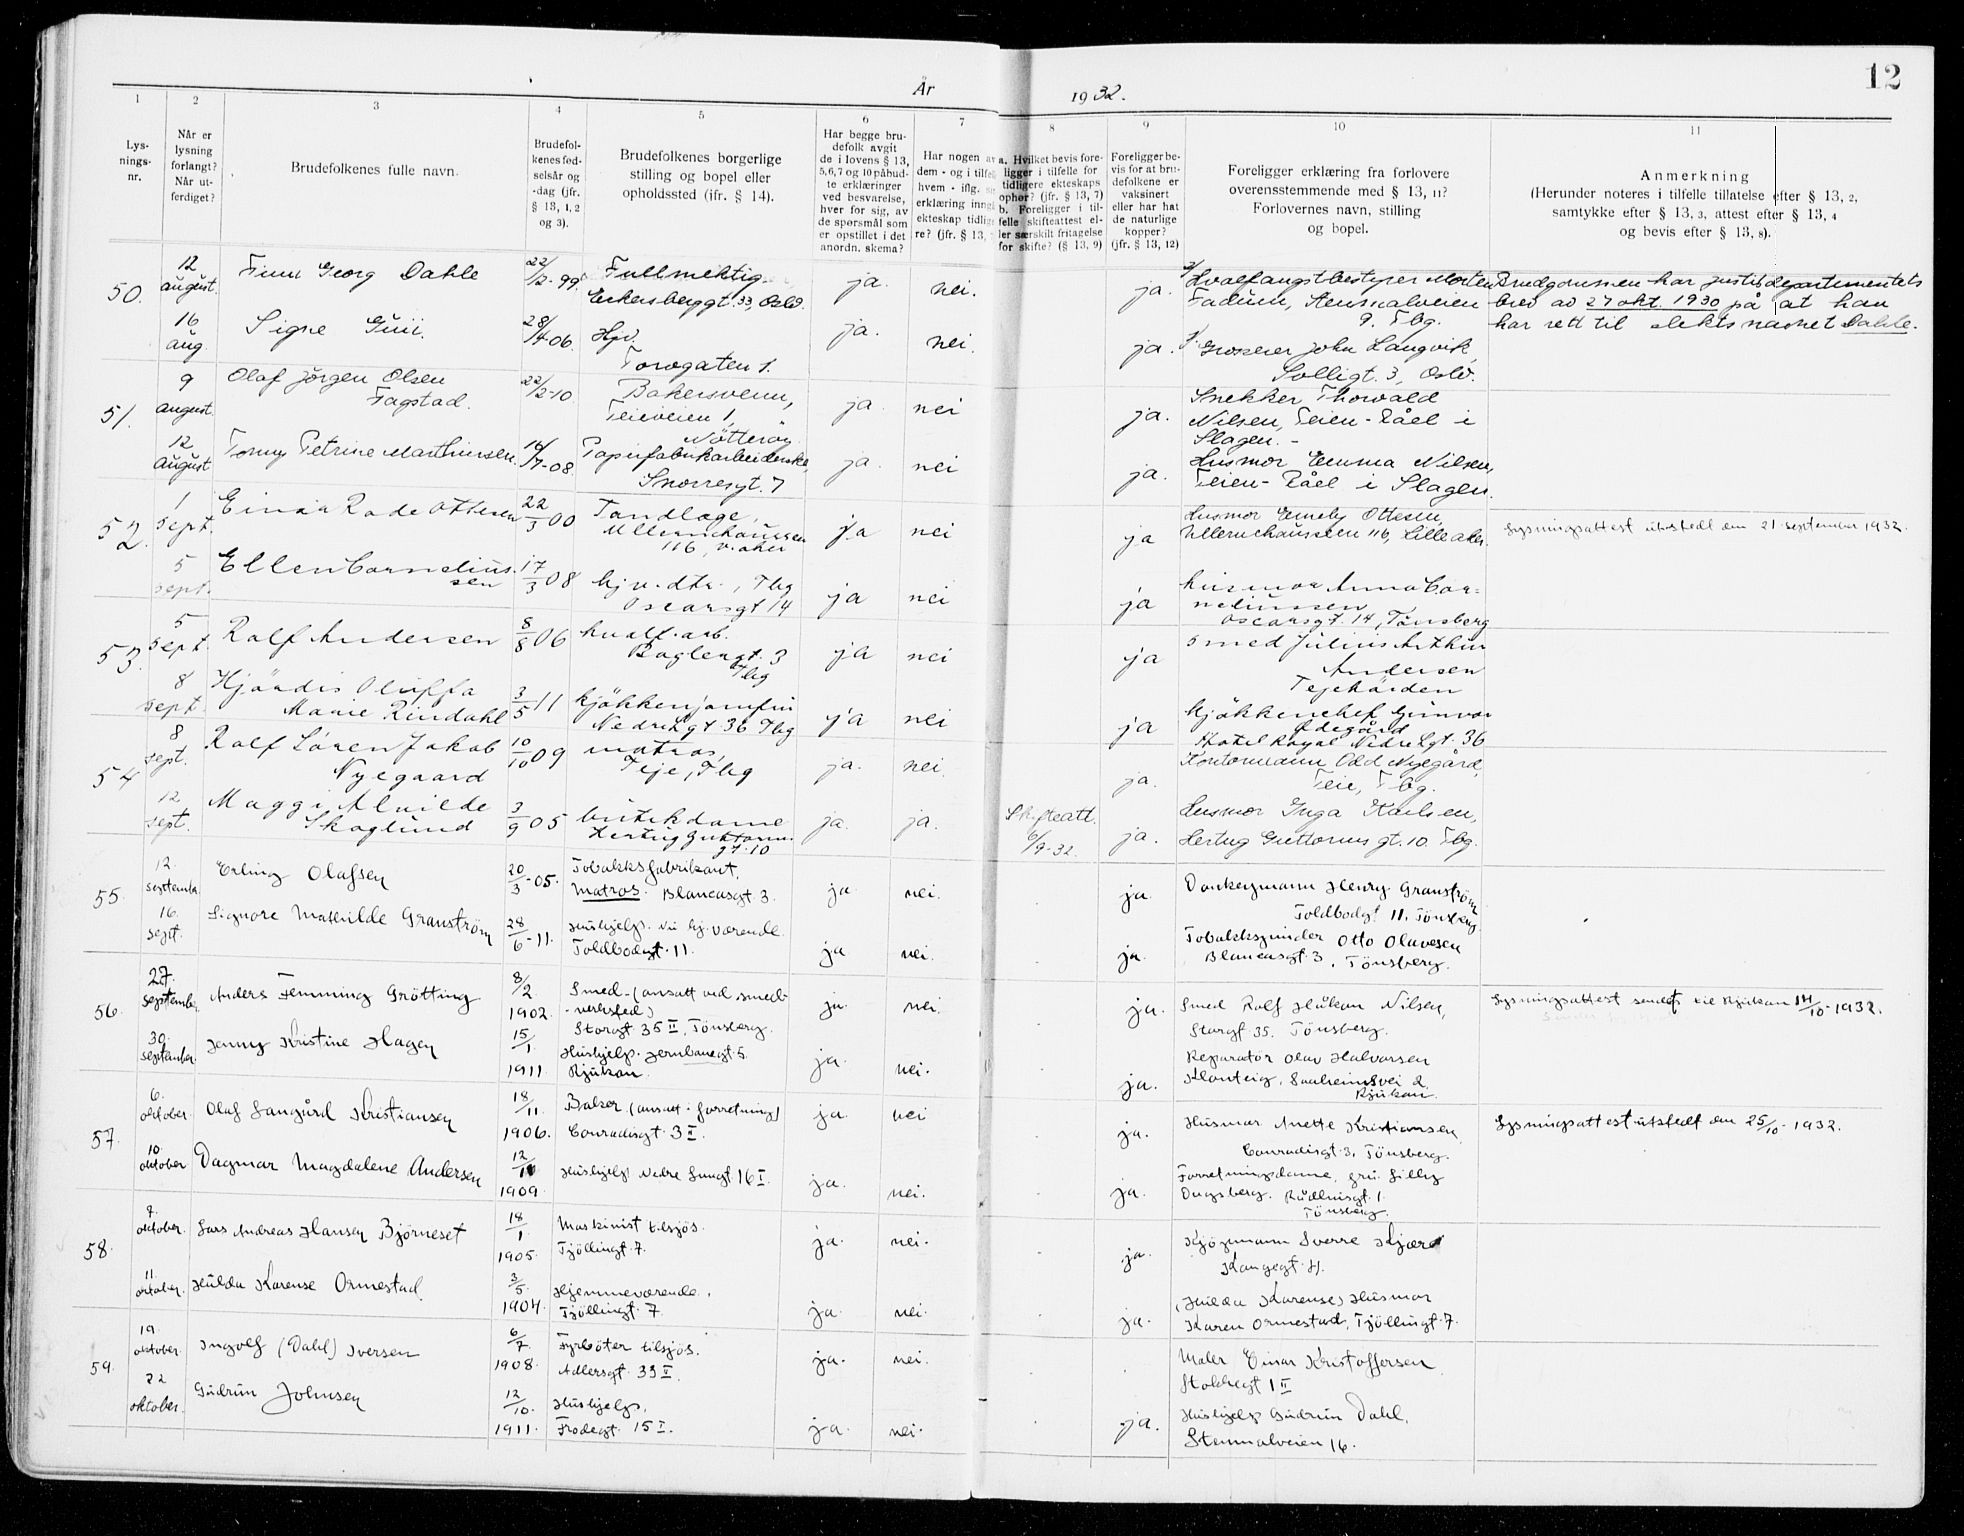 År
1932.
12
1
Lys-
nings-
nr.
2
Når er
lysning
forlangt?
Når ut-
ferdiget?
3
Brudefolkenes fulle navn.
4
Brudefol-
kenes fød-
selsår og
-dag (jfr.
§ 13, 1, 2
og 3).
5
Brudefolkenes borgerlige
stilling og bopel eller
opholdssted (ifr. § 14).
6
Har begge bru-
defolk avgit
de i lovens § 13,
5, 6, 7 og 10 påbud-
te erklæringer
ved besvarelse,
hver for sig, av
de spørsmål som
er opstillet i det
anordn. skema?
7
Har nogen av
dem - og i tilfelle
hvem - iflg.
erklæring inngått
ekteskap tidlige-
re? (jfr. § 13,
8
a. Hvilket bevis fore-
ligger i tilfelle for
tidligere ekteskaps
ophør? (jfr. § 13, 7)
b. Foreligger i til-
felle skifteattest el-
ler særskilt fritagelse
for skifte? (§ 13, 9)
9
Foreligger be-
vis for at bru-
defolkene er
vaksinert
eller har hat
de naturlige
kopper?
(jfr. § 13, 12)
10
Foreligger erklæring fra forlovere
overensstemmende med § 13, 11?
Forlovernes navn, stilling
og bopel.
11
Anmerkning
(Herunder noteres i tilfelle tillatelse efter § 13, 2,
samtykke efter § 13, 3, attest efter § 13, 4
og bevis efter § 13, 8).
50.
12
august.
Finn Georg Dahle
22/12-99
Fullmektig
Eckersberggt. 33, Oslo.
ja.
nei.
ja.
Hvalfangstbestyrer Morten
Fadum, Stensmalveien
9. Tbg.
Brudgommen har justitsdepartementets
brev av 27 okt. 1930 på at han
har rett til slektsnavnet Dahle.
16
aug.
Signe Gui.
28/4-06.
Hjv.
Torvgaten 1.
ja.
nei.
ja.
Grosserer John Langvik,
Solligt. 3, Oslo.
51.
9
august.
Olaf Jörgen Olsen
Fagstad.
22/2-10
Bakersvenn,
Teieveien 1,
Nötteröy.
ja.
nei
ja.
Snekker Thorvald
Nilsen, Teien-Råel i
Slagen. -
12
august
Tomy Petrine Mathiussen.
14/7-08.
Papirfabrikarbeiderske,
Snorresgt. 7
ja.
nei
ja.
Husmor Emma Nilsen,
Teien-Råel i Slagen.
52.
1
sept.
Einar Rode Ottesen
22/3 00
Tandlæge,
Ullernchausseen
116, v. aker
ja
nei
ja
Husmor Emely Ottesen,
Ullernchausseen 116, Lilleaker.
Lysningsattest utstedt den 21. september 1932.
5
sept.
Ellen Cornelius-
sen
17/3 08
hjv. dtr., Tbg
Oscarsgt 14
ja
nei
ja
husmor Anna Cor-
neliussen
Oscarsgt. 14, Tønsberg
53.
5
sept.
Rolf Andersen
8/8 06
hvalf. arb.
Baglergt. 3
Tbg
ja
nei
ja
smed Julius Arthur
Andersen
Tejehöiden
8
sept.
Hjördis Oluffa
Marie Rindahl
3/5 11
kjökkenjomfru
Nedre Lgt. 36 Tbg
ja
nei
ja
Kjökkenchef Gunvor
Ødegård
Hotel Royal Nedre Lgt. 36
54
8
sept.
Rolf Sören Jakob
Nyegaard
10/10 09
matros,
Teje, Tbg
ja.
nei.
ja.
Kontormann Odd Nyegård,
Teie, Tbg.
12
sept.
Maggi Alvilde
Skoglund
3/9 05
butikdame
Hertug Guttorms
gt. 10
ja.
ja.
Sk. skeatt.
6/9-32.
ja.
Husmor Inga Karlsen,
Hertug Guttorms gt. 10. Tbg.
55.
12.
september.
Erling Olafsen
20/3-05.
Tobakksfabrikant,
Matros. Blancasgt 3.
ja.
nei.
ja.
Donkeymann Henry Granström
Toldbodgt 11, Tönsberg.
16.
sept.
Signore Mathilde Granström
28/6-11.
Hushjelp. Nu hj. værende.
Toldbodgt. 11.
ja
nei.
ja.
Tobakksspinder Otto Olavesen
Blancasgt 3, Tönsberg.
56.
27.
september.
Anders Flemming Grötting
8/2
1902.
Smed- (ansatt ved smed-
-verksted)
Storgt 35 II, Tönsberg.
ja.
nei.
ja.
Smed Rolf Håkon Nilsen,
Storgt. 35. Tönsberg.
Lysningsattest sendt til Rjukan 14/10-1932.
30.
september.
Jenny Kristine Hagen
15/1.
1911.
Hushjelp. Jernbanegt 5.
Rjukan.
ja.
nei.
ja.
Reparatör Olav Halvorsen
Klonteig, Saaheimsvei 2.
Rjukan.
57.
6.
oktober.
Olaf Langård Kristiansen
18/11.
1906.
Baker (ansatt i forretning)
Conradisgt 3 II.
ja.
nei
ja.
Husmor Anette Kristiansen,
Conradisgt. 3, Tönsberg.
Lysningsattest utstedt den 25/10-1932.
10.
oktober
Dagmar Magdalene Andersen
12/11
1909.
Hushjelp Nedre Langgt. 16 I.
ja.
nei.
ja.
Forretningsdame, fru Lilly
Dugsberg. Rådhusgt. 1.
Tönsberg.
58.
7.
oktober.
Lars Andreas Hansen Björneset
18/1
1905.
Maskinist tilsjös.
Tjöllingt. 7.
ja.
nei.
ja.
Kjöpmann Sverre Kjær
Kongegt. 4.
11.
oktober.
Hulda Karense Ormestad.
3/5.
1904.
Hjemmeværende.
Tjöllingt. 7.
ja.
nei.
ja.
(Hulda Karense) Husmor
Karen Ormestad, Tjöllingt. 7.
59.
19
oktober.
Ingolf (Dahl) Iversen
6/7.
1908.
Fyrböter tilsjös.
Adlersgt. 33 II.
ja.
nei.
Maler Einar Kristoffersen
Stokkegt 1 II
22
oktober.
Gudrun Johnsen
12/10.
1911.
Hushjelp,
Frodegt. 15 I.
ja.
nei.
ja.
Hushjelp Gudrun Dahl,
Stenmalveien 16.